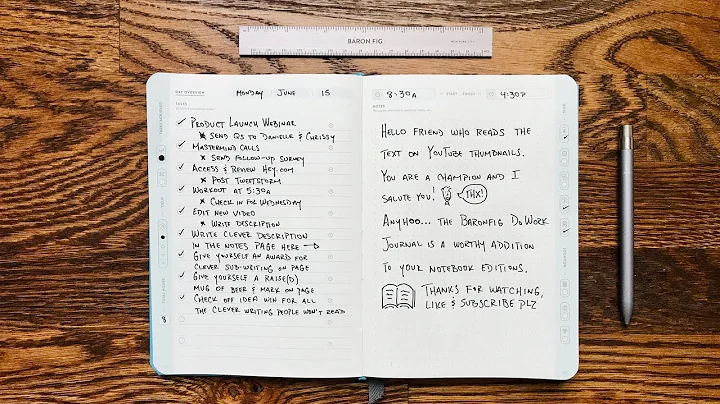 BARON FIG
NEW YORK CITY
DAY OVERVIEW
MONDAY JUNE 15
TASKS
✓ PRODUCT LAUNCH WEBINAR
✗ SEND QS TO DANIELLE & CHRISSY
✓ MASTERMIND CALLS
✗ SEND FOLLOW-UP SURVEY
✓ ACCESS & REVIEW HEY.COM
✗ POST TWEETSTORM
✓ WORKOUT AT 5:30A
✗ CHECK IN FOR WEDNESDAY
✓ EDIT NEW VIDEO
✗ WRITE DESCRIPTION
✓ WRITE CLEVER DESCRIPTION
IN THE NOTES PAGE HERE →
✓ GIVE YOURSELF AN AWARD FOR
CLEVER SUB-WRITING ON PAGE
✓ GIVE YOURSELF A RAISE(D)
MUG OF BEER & MARK ON PAGE
✓ CHECK OFF IDEA WIN FOR ALL
THE CLEVER WRITING PEOPLE WON'T READ
8
8:30A START FINISH 4:30P
NOTES
HELLO FRIEND WHO READS THE
TEXT ON YOUTUBE THUMBNAILS.
YOU ARE A CHAMPION AND I
SALUTE YOU! THX!
ANYHOO... THE BARONFIG DO WORK
JOURNAL IS A WORTHY ADDITION
TO YOUR NOTEBOOK EDITIONS.
THANKS FOR WATCHING,
LIKE & SUBSCRIBE PLZ